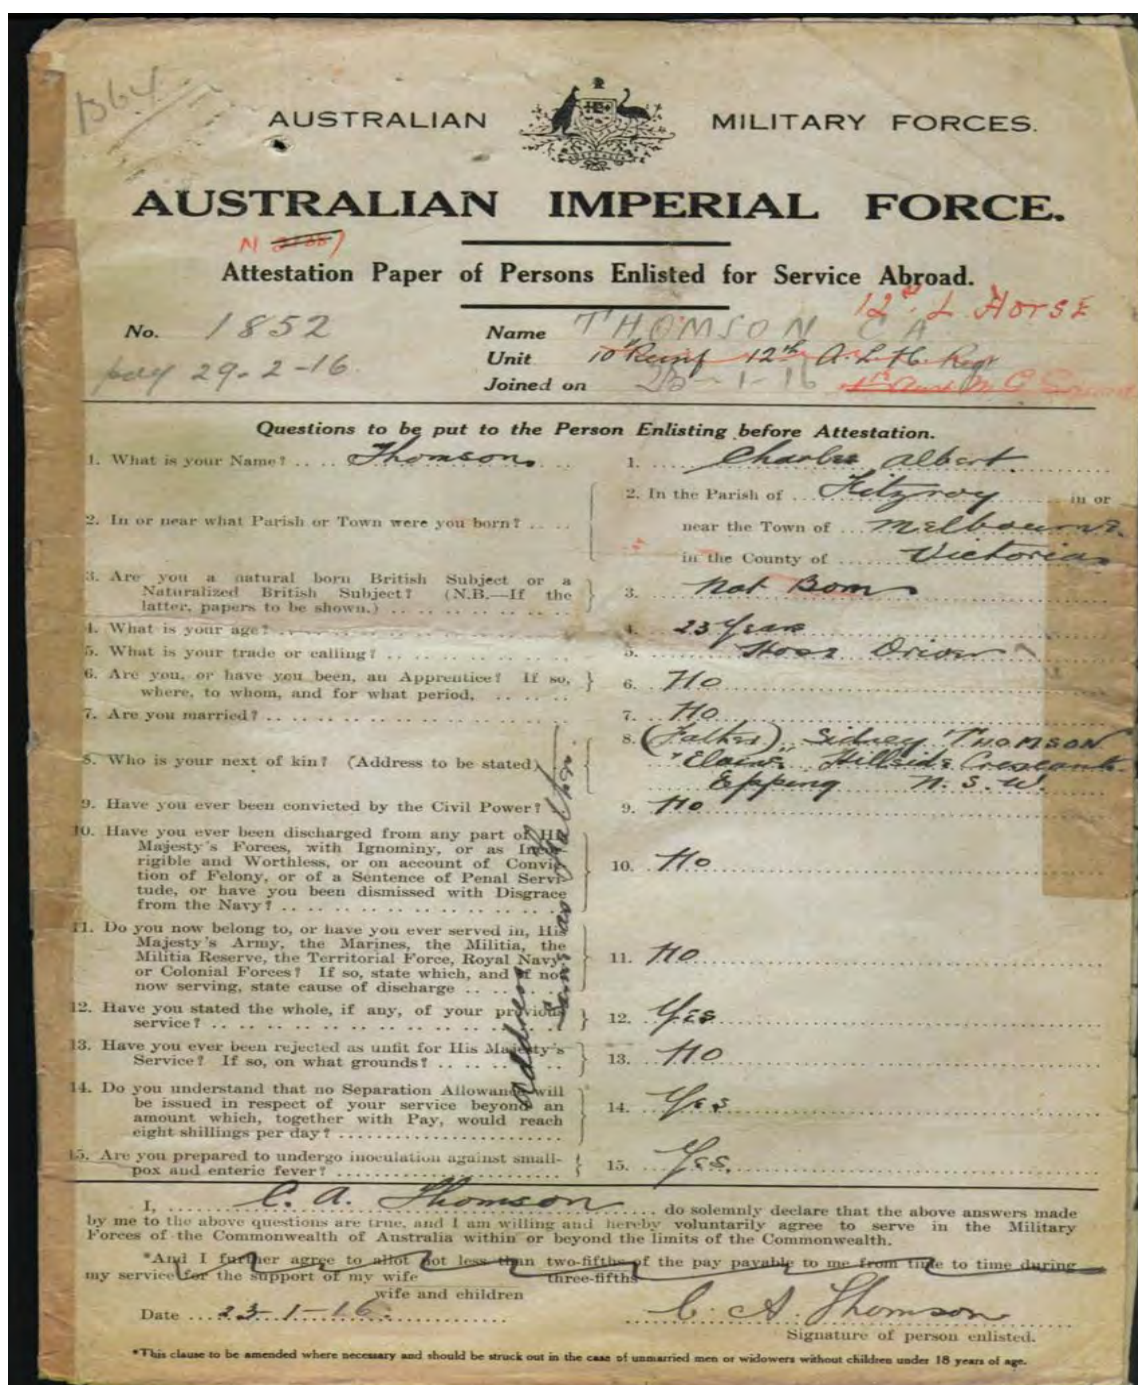 B64
AUSTRALIAN MILITARY FORCES.
AUSTRALIAN IMPERIAL FORCE.
N
Attestation Paper of Persons Enlisted for Service Abroad.
12th L HORSE
No. 1852 Name THOMSON C A
Unit 10 Reinf 12th A. L. H. Regt
pay 29-2-16. Joined on 23-1-16
Questions to be put to the Person Enlisting before Attestation.
1. What is your Name? .... Thomson 1. Charles Albert.
2. In or near what Parish or Town were you born? .... 2. In the Parish of Fitzroy in or
near the Town of Melbourne.
in the County of Victoria
3. Are you a natural born British Subject or a
Naturalized British Subject? (N.B.—If the
latter, papers to be shown.) 3. Nat Born
4. What is your age? 4. 23 Years
5. What is your trade or calling? 5. Driver
6. Are you, or have you been, an Apprentice? If so,
where, to whom, and for what period, 6. No
7. Are you married? 7. No
8. Who is your next of kin? (Address to be stated) 8. (Father) Sidney THOMSON
Hillside Crescent
Epping N. S. W.
9. Have you ever been convicted by the Civil Power? 9. No
10. Have you ever been discharged from any part of His
Majesty's Forces, with Ignominy, or as Incor-
rigible and Worthless, or on account of Convic-
tion of Felony, or of a Sentence of Penal Servi-
tude, or have you been dismissed with Disgrace
from the Navy? 10. No
11. Do you now belong to, or have you ever served in, His
Majesty's Army, the Marines, the Militia, the
Militia Reserve, the Territorial Force, Royal Navy,
or Colonial Forces? If so, state which, and if not
now serving, state cause of discharge 11. No
12. Have you stated the whole, if any, of your previous
service? 12. Yes
13. Have you ever been rejected as unfit for His Majesty's
Service? If so, on what grounds? 13. No
14. Do you understand that no Separation Allowance will
be issued in respect of your service beyond an
amount which, together with Pay, would reach
eight shillings per day? 14. Yes
15. Are you prepared to undergo inoculation against small-
pox and enteric fever? 15. Yes.
Address
I, C. A. Thomson do solemnly declare that the above answers made
by me to the above questions are true, and I am willing and hereby voluntarily agree to serve in the Military
Forces of the Commonwealth of Australia within or beyond the limits of the Commonwealth.
*And I further agree to allot not less than two-fifths of the pay payable to me from time to time during
three-fifths
my service for the support of my wife
wife and children
Date 23-1-16. C. A. Thomson
Signature of person enlisted.
*This clause to be amended where necessary and should be struck out in the case of unmarried men or widowers without children under 18 years of age.